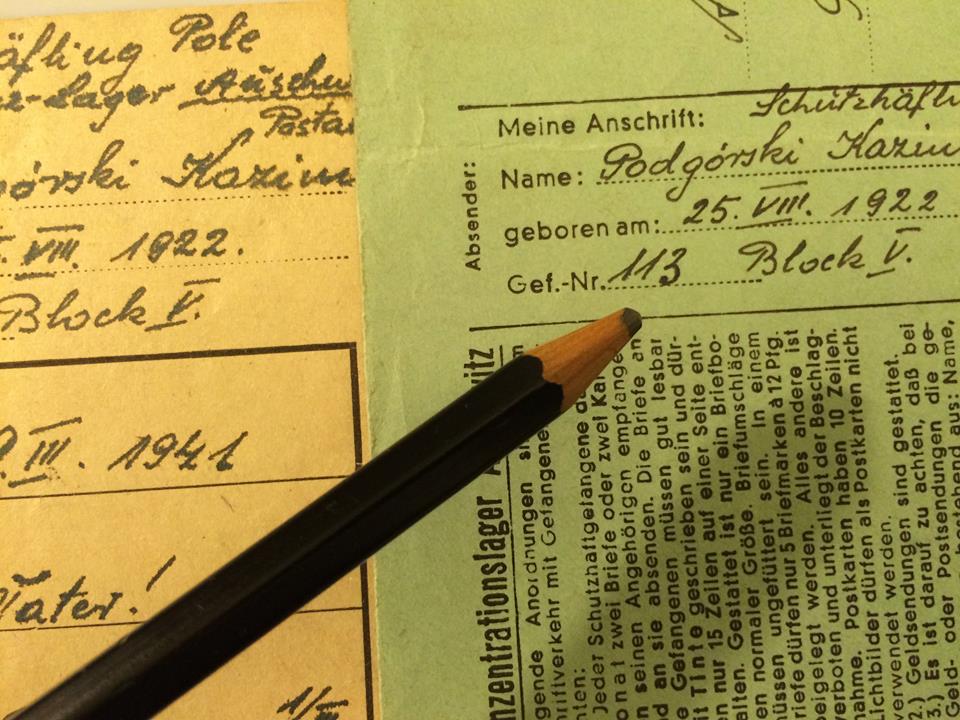 äftling Pole
z-Lager Auschw
Posta
górski Kazim
. VIII. 1922.
Block V.
. III. 1941
Vater!
1/III
Meine Anschrift: Schutzhäftl
Absender:
Name: Podgórski Kazim
geboren am: 25. VIII. 1922
Gef.-Nr. 113 Block V.
nzentrationslager A witz
gende Anordnungen si
hriftverkehr mit Gefangene
ten:
Jeder Schutzhaftgefangene da
onat zwei Briefe oder zwei Kar
n seinen Angehörigen empfange
nd an sie absenden. Die Briefe an
e Gefangenen müssen gut lesbar
it Tinte geschrieben sein und dür-
en nur 15 Zeilen auf einer Seite ent-
alten. Gestattet ist nur ein Briefbo-
en normaler Größe. Briefumschläge
üssen ungefüttert sein. In einem
riefe dürfen nur 5 Briefmarken à 12 Pfg.
eigelegt werden. Alles andere ist
erboten und unterliegt der Beschlag-
nahme. Postkarten haben 10 Zeilen.
ichtbilder dürfen als Postkarten nicht
erwendet werden.
2.) Geldsendungen sind gestattet.
3.) Es ist darauf zu achten, daß bei
Geld- oder Postsendungen die ge-
bestehend aus: Name,